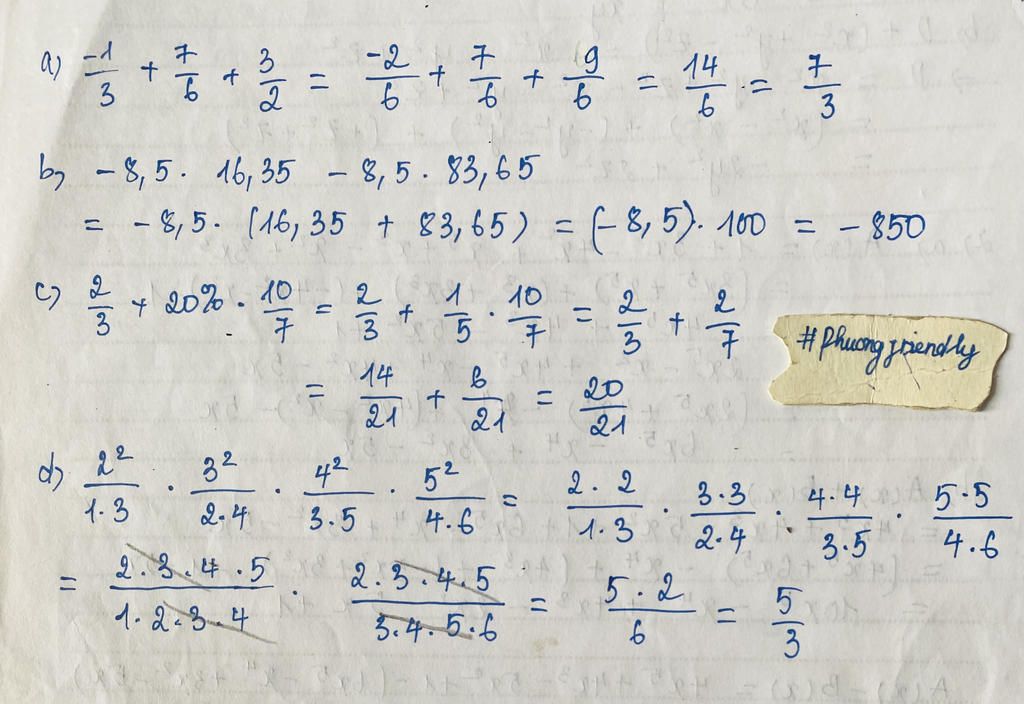 a) -1/3 + 7/6 + 3/2 = -2/6 + 7/6 + 9/6 = 14/6 = 7/3
b) -8,5 . 16,35 - 8,5 . 83,65
= -8,5 . (16,35 + 83,65) = (-8,5) . 100 = -850
c) 2/3 + 20% . 10/7 = 2/3 + 1/5 . 10/7 = 2/3 + 2/7
#Phuongfriendly
= 14/21 + 6/21 = 20/21
d) 2²/1.3 . 3²/2.4 . 4²/3.5 . 5²/4.6 = 2.2/1.3 . 3.3/2.4 . 4.4/3.5 . 5.5/4.6
= 2.3.4.5/1.2.3.4 . 2.3.4.5/3.4.5.6 = 5.2/6 = 5/3